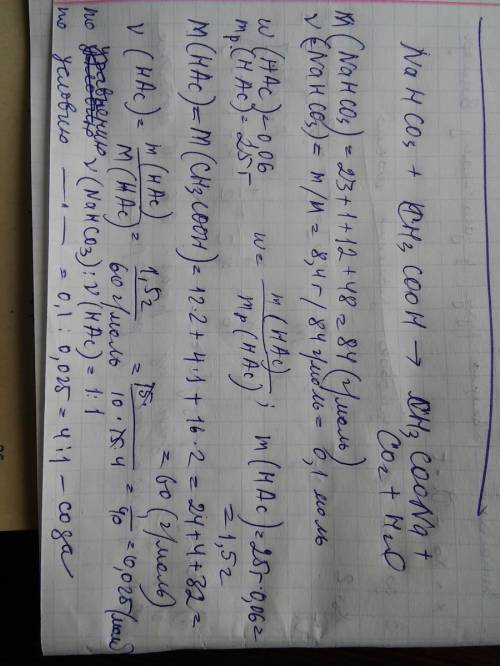 NaHCO₃ + CH₃COOH → CH₃COONa +
CO₂ + H₂O
M(NaHCO₃) = 23+1+12+48 = 84 (г/моль)
ν(NaHCO₃) = m/M = 8,4г/84г/моль = 0,1 моль
w(HAc) = 0,06
mр.(HAc) = 25г
w = m(HAc)/mр(HAc); m(HAc) = 25г·0,06 =
= 1,5г
M(HAc) = M(CH₃COOH) = 12·2 + 4·1 + 16·2 = 24+4+32 =
= 60 (г/моль)
ν(HAc) = m(HAc)/M(HAc) = 1,5г/60г/моль = 15/10·15·4 = 1/40 = 0,025 (моль)
по уравнению ν(NaHCO₃) : ν(HAc) = 1:1
по условию —„— = 0,1 : 0,025 = 4:1 – сода